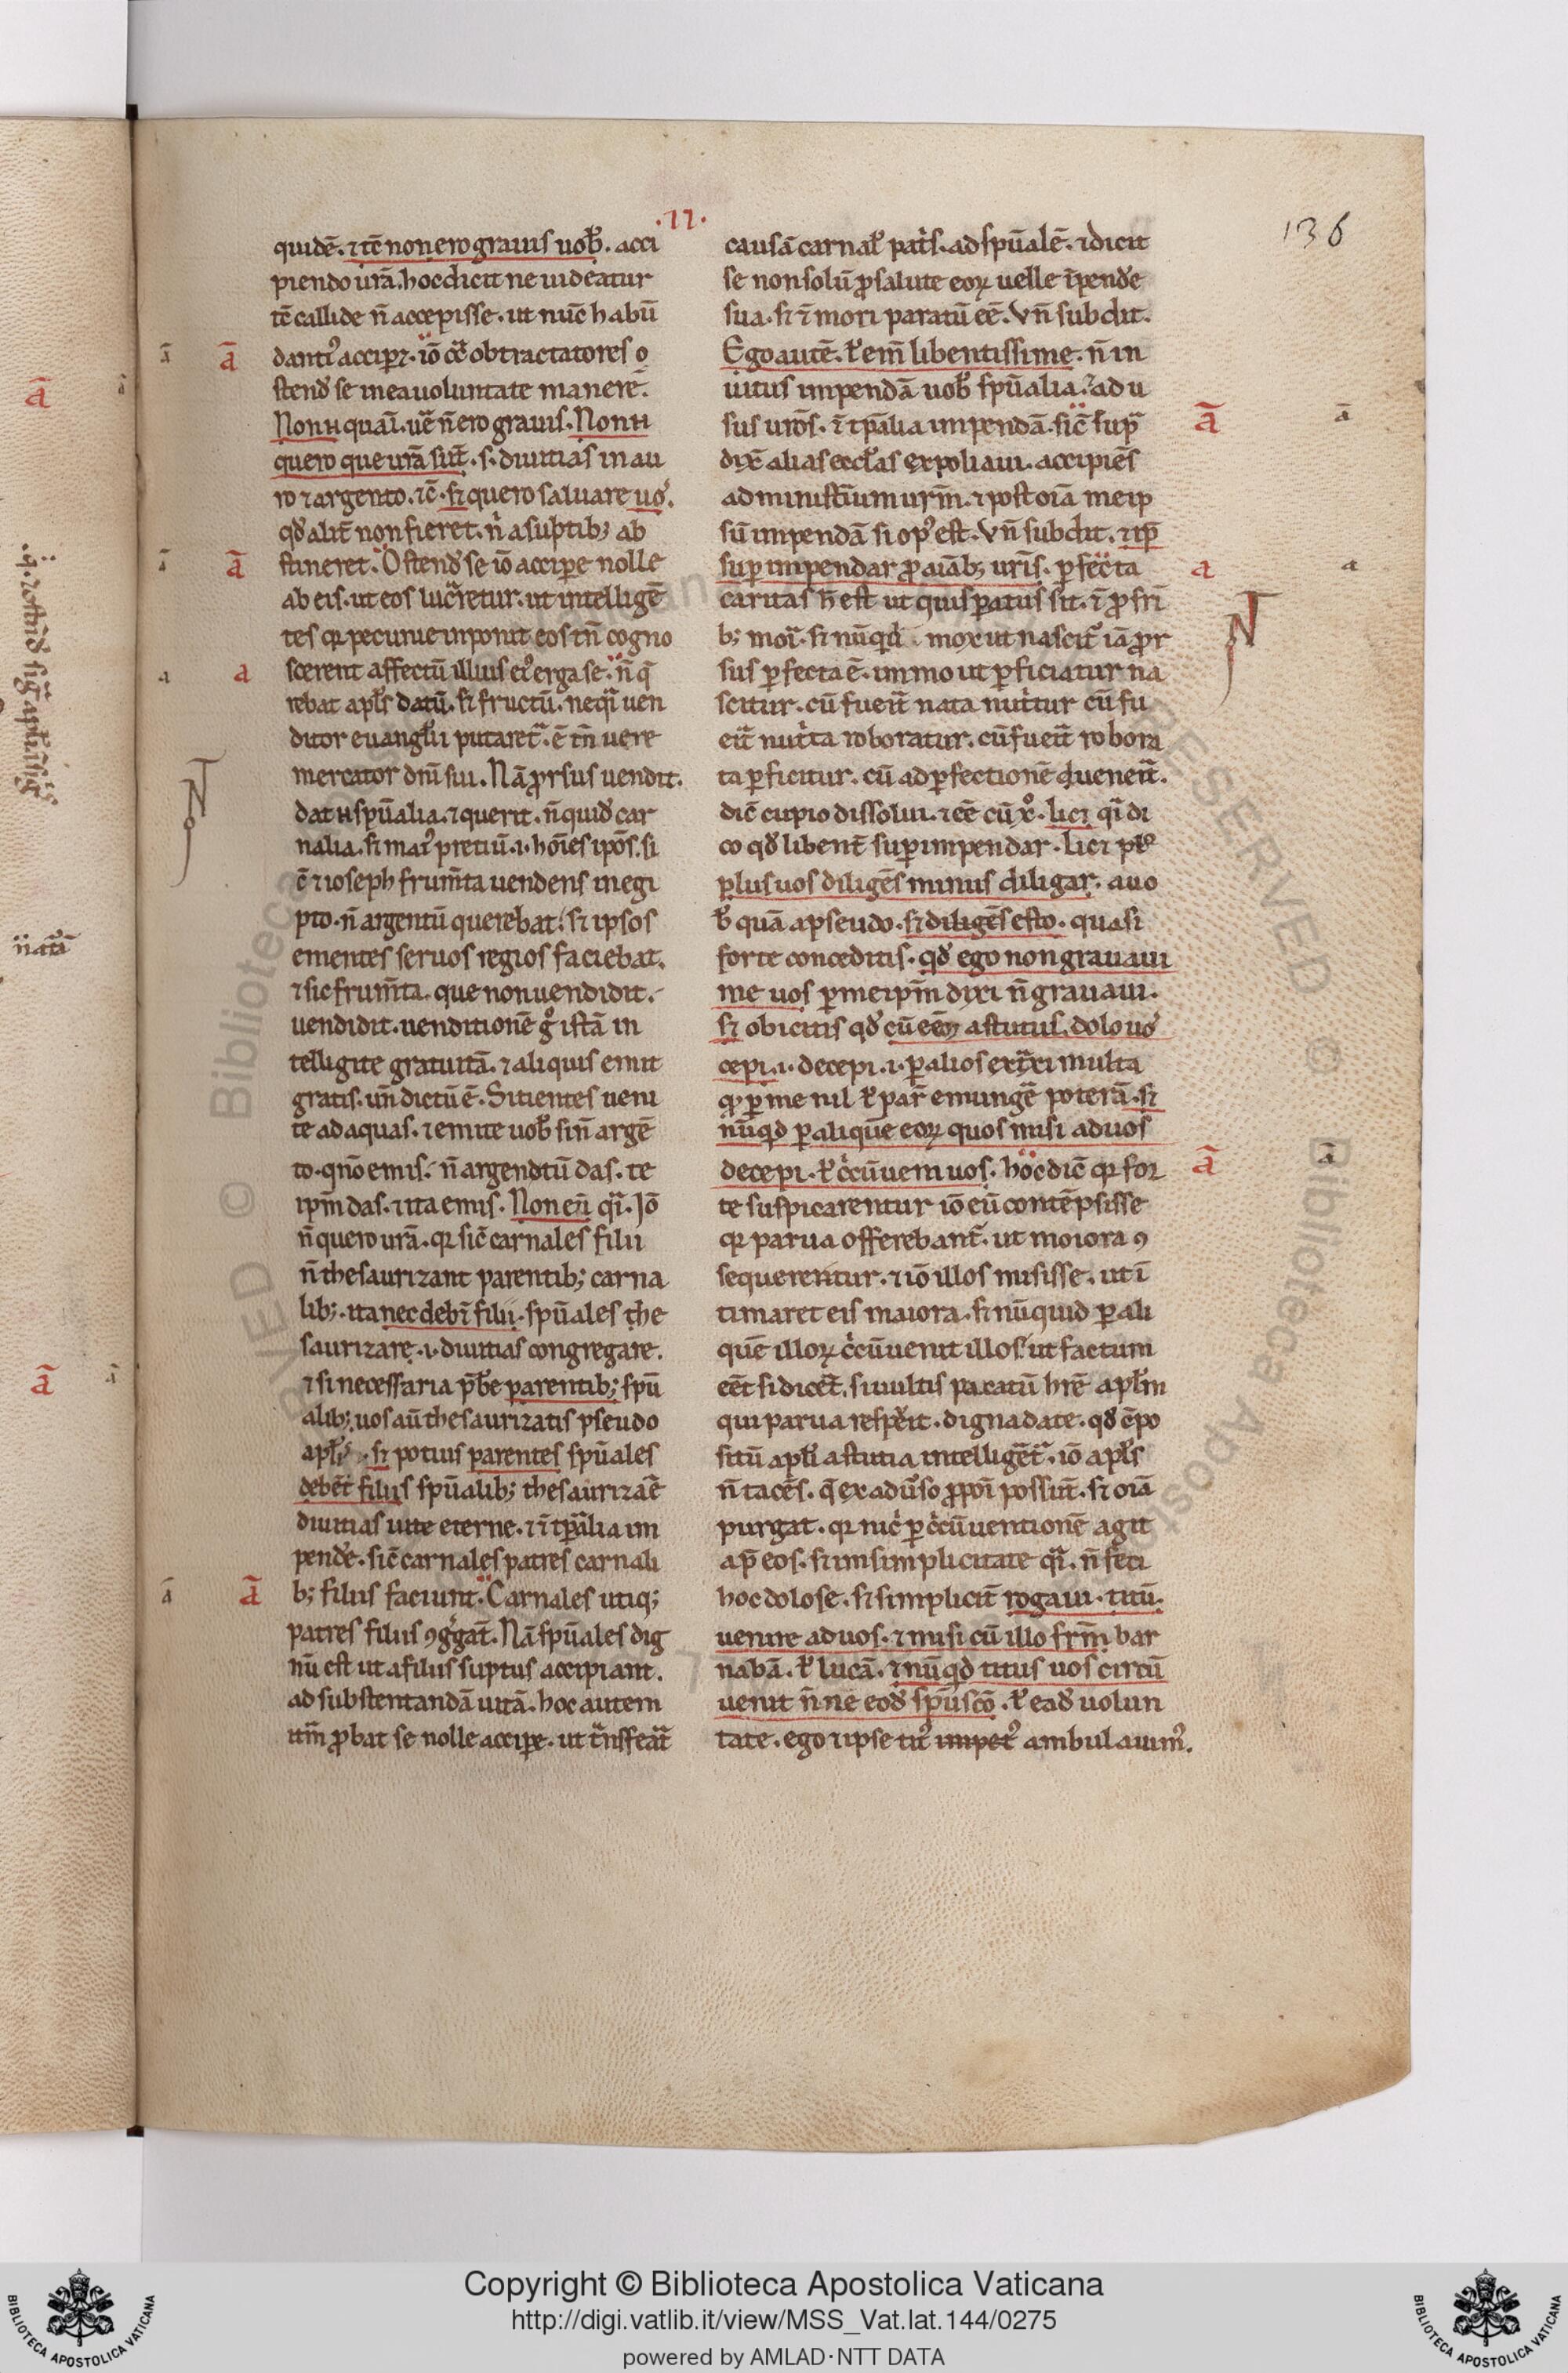 .11.
136
quidē. ⁊ tc̄ non ero grauis uob̄. acci
piendo ur̄a. hoc dicit ne uideatur
tc̄ callide n̄ accepisse. ut nūc habū
dantiꝰ acciper̄. iō cc̄ obtractatores o
stend̄ se in ea uoluntate manere.
Non .n. quaī. ue n̄ ero grauis. Non .n.
quero que ur̄a sūt. s. diuitias in au
ro ⁊ argento. ⁊c̄. sꝫ quero saluare uos.
qd̄ alit̄ non fieret. nͥ a suptib; ab
stineret. Ostend̄ se iō accipe nolle
ab eis. ut eos lucᷓretur. ut intelligē
tes qꝛ pecunie inponit eos tn̄ cogno
scerent affectū illius eiꝰ erga se. n̄ q̄
rebat apl̄s datū. sꝫ fructū. ne qͣi uen
ditor euangl̄ii putaret. ē tn̄ uere
mercator dn̄i sui. Nā ꝓrsus uendit.
dat .n. spūalia. ⁊ querit. n̄ quid̄ car
nalia. sꝫ maiꝰ pretiū. .i. hoīes ipōs. si
c̄ ⁊ ioseph frum̄ta uendens in egi
pto. n̄ argentū querebat. sꝫ ipsos
ementes seruos regios faciebat.
⁊ sic frum̄ta. que non uendidit.
uendidit. uenditionē gͦ istā in
telligite gratuitā. ⁊ aliquis emit
gratis. un̄ dictū ē. Sitientes ueni
te ad aquas. ⁊ emite uob̄ sin̄ argē
to. qn̄o emis. n̄ argendtū das. te
ipm̄ das. ⁊ ita emis. Non en̄ qͣi. Iō
n̄ quero ur̄a. qꝛ sic̄ carnales filii
n̄ thesaurizant parentib; carna
lib;. ita nec debn̄t filii. spūales the
saurizare. .i. diuitias congregare.
⁊ si necessaria p̄be parentib; spū
alib;. uos aū thesaurizatis pseudo
apl̄is. sꝫ potius parentes spūales
debēt filiis spūalib; thesaurizare
diuitias uite eterne. ⁊ ⁊ tp̄alia im
pend̄e. sic̄ carnales patres carnali
b; filiis faciunt. Carnales utiq;
patres filiis ꝯgͥgat̄. Nā spūales dig
nū est ut a filiis suptus accipiant.
ad substentandā uitā. hoc autem
itm̄ ꝓbat se nolle accipe. ut tn̄sfeat
causā carnal̄ pat̄s. ad spūalē. ⁊ dicit
se non solū ꝓ salute eoꝝ uelle īpend̄e
sua. sꝫ ⁊ mori paratū eē. Vn̄ subdit.
Ego autē. ł em̄ libentissime. n̄ in
uitus impendā uob̄ spūalia. ad u
sus uros̄. ⁊ tp̄alia impendā. sic̄ supͣ
dix̄ alias eccl̄as expoliaui. accipiēs
ad ministīum urm̄. ⁊ post oīa meip
sū impendā si opꝰ est. Vn̄ subdit. ⁊ ip̄
sup impendar ꝓ aīab; uris̄. ꝑfecta
caritas h̄ est ut quis paratus sit. ⁊ ꝓ frī
b; mori. sꝫ nūqd̄ mox ut nascit̄ iā ꝓr
sus ꝑfecta ē. immo ut ꝑficiatur na
scitur. cū fuerit̄ nata nutͥtur cū fu
eit̄ nutͥta roboratur. cū fueit̄ robora
ta ꝑficitur. cū ad ꝑfectionē deuenerit̄.
dic̄ cupio dissolui. ⁊ eē cū xͦ. licꝫ qͣi di
co qd̄ libent̄ sup impendar. licꝫ
plus uos diligēs minus diligar. a uo
b̄ quā a pseudo. sꝫ diligēs esto. quasi
forte conceditis. qd̄ ego non grauaui
me uos ꝑ meipm̄ dixi n̄ grauaui.
sꝫ obicitis qd̄ cū eēm astutus. dolo uos
cepi. .i. decepi. .i. ꝑ alios extͣxi multa
qꝛ ꝑ me nil ł par̄ emunge poterā. sꝫ
nūqd̄ ꝑ aliquē eoꝝ quos misi ad uos
decepi. ł cͥcūueni uos. hoc dic̄ qꝛ for
te suspicarentur iō eū contēpsisse
qꝛ parua offerebant̄. ut moiora ꝯ
sequerentur. ⁊ iō illos misisse. ut ī
timaret eis maiora. sꝫ nūquid ꝑ ali
quē illoꝝ cͥcūuenit illos. ut factum
eēt si dicēt. si uultis paratū hr̄e apl̄m
qui parua respͣit. digna date. qd̄ cpō
situ apl̄i astutia intelligēt̄. iō apl̄s
n̄ tacēs. q̄ ex aduꝰso ꝓpoī possūt. sꝫ oīa
purgat. qꝛ nicͥ ꝑ cͥcūuentionē agit
ap̄ eos. sꝫ in simplicitate qͣi. n̄ feci
hoc dolose. sꝫ simplicit̄ rogaui. titū.
uenire ad uos. ⁊ misi cū illo frm̄ bar
nabā. ł lucā. ⁊ nūqd̄ titus uos circū
uenit n̄ne eod̄ spū scō. ł ead̄ uolun
tate. ego ⁊ ipse tit̄ impet̄ ambulauimꝰ.
Copyright © Biblioteca Apostolica Vaticana
http://digi.vatlib.it/view/MSS_Vat.lat.144/0275
powered by AMLAD·NTT DATA